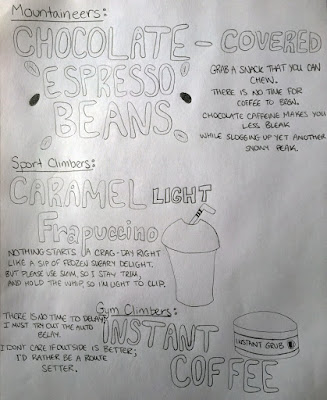 Mountaineers:
CHOCOLATE - COVERED
ESPRESSO
BEANS
GRAB A SNACK THAT YOU CAN
CHEW.
THERE IS NO TIME FOR
COFFEE TO BREW.
CHOCOLATE CAFFEINE MAKES YOU
LESS BLEAK
WHILE SLOGGING UP YET ANOTHER
SNOWY PEAK.
Sport Climbers:
CARAMEL LIGHT
Frapuccino
NOTHING STARTS A CRAG-DAY RIGHT
LIKE A SIP OF FROZEN SUGARY DELIGHT.
BUT PLEASE USE SKIM, SO I STAY TRIM,
AND HOLD THE WHIP, SO I'M LIGHT TO CLIP.
Gym Climbers:
INSTANT
COFFEE
THERE IS NO TIME TO DELAY;
I MUST TRY OUT THE AUTO
BELAY.
I DONT CARE IF OUTSIDE IS BETTER;
I'D RATHER BE A ROUTE
SETTER.
INSTANT GRUB